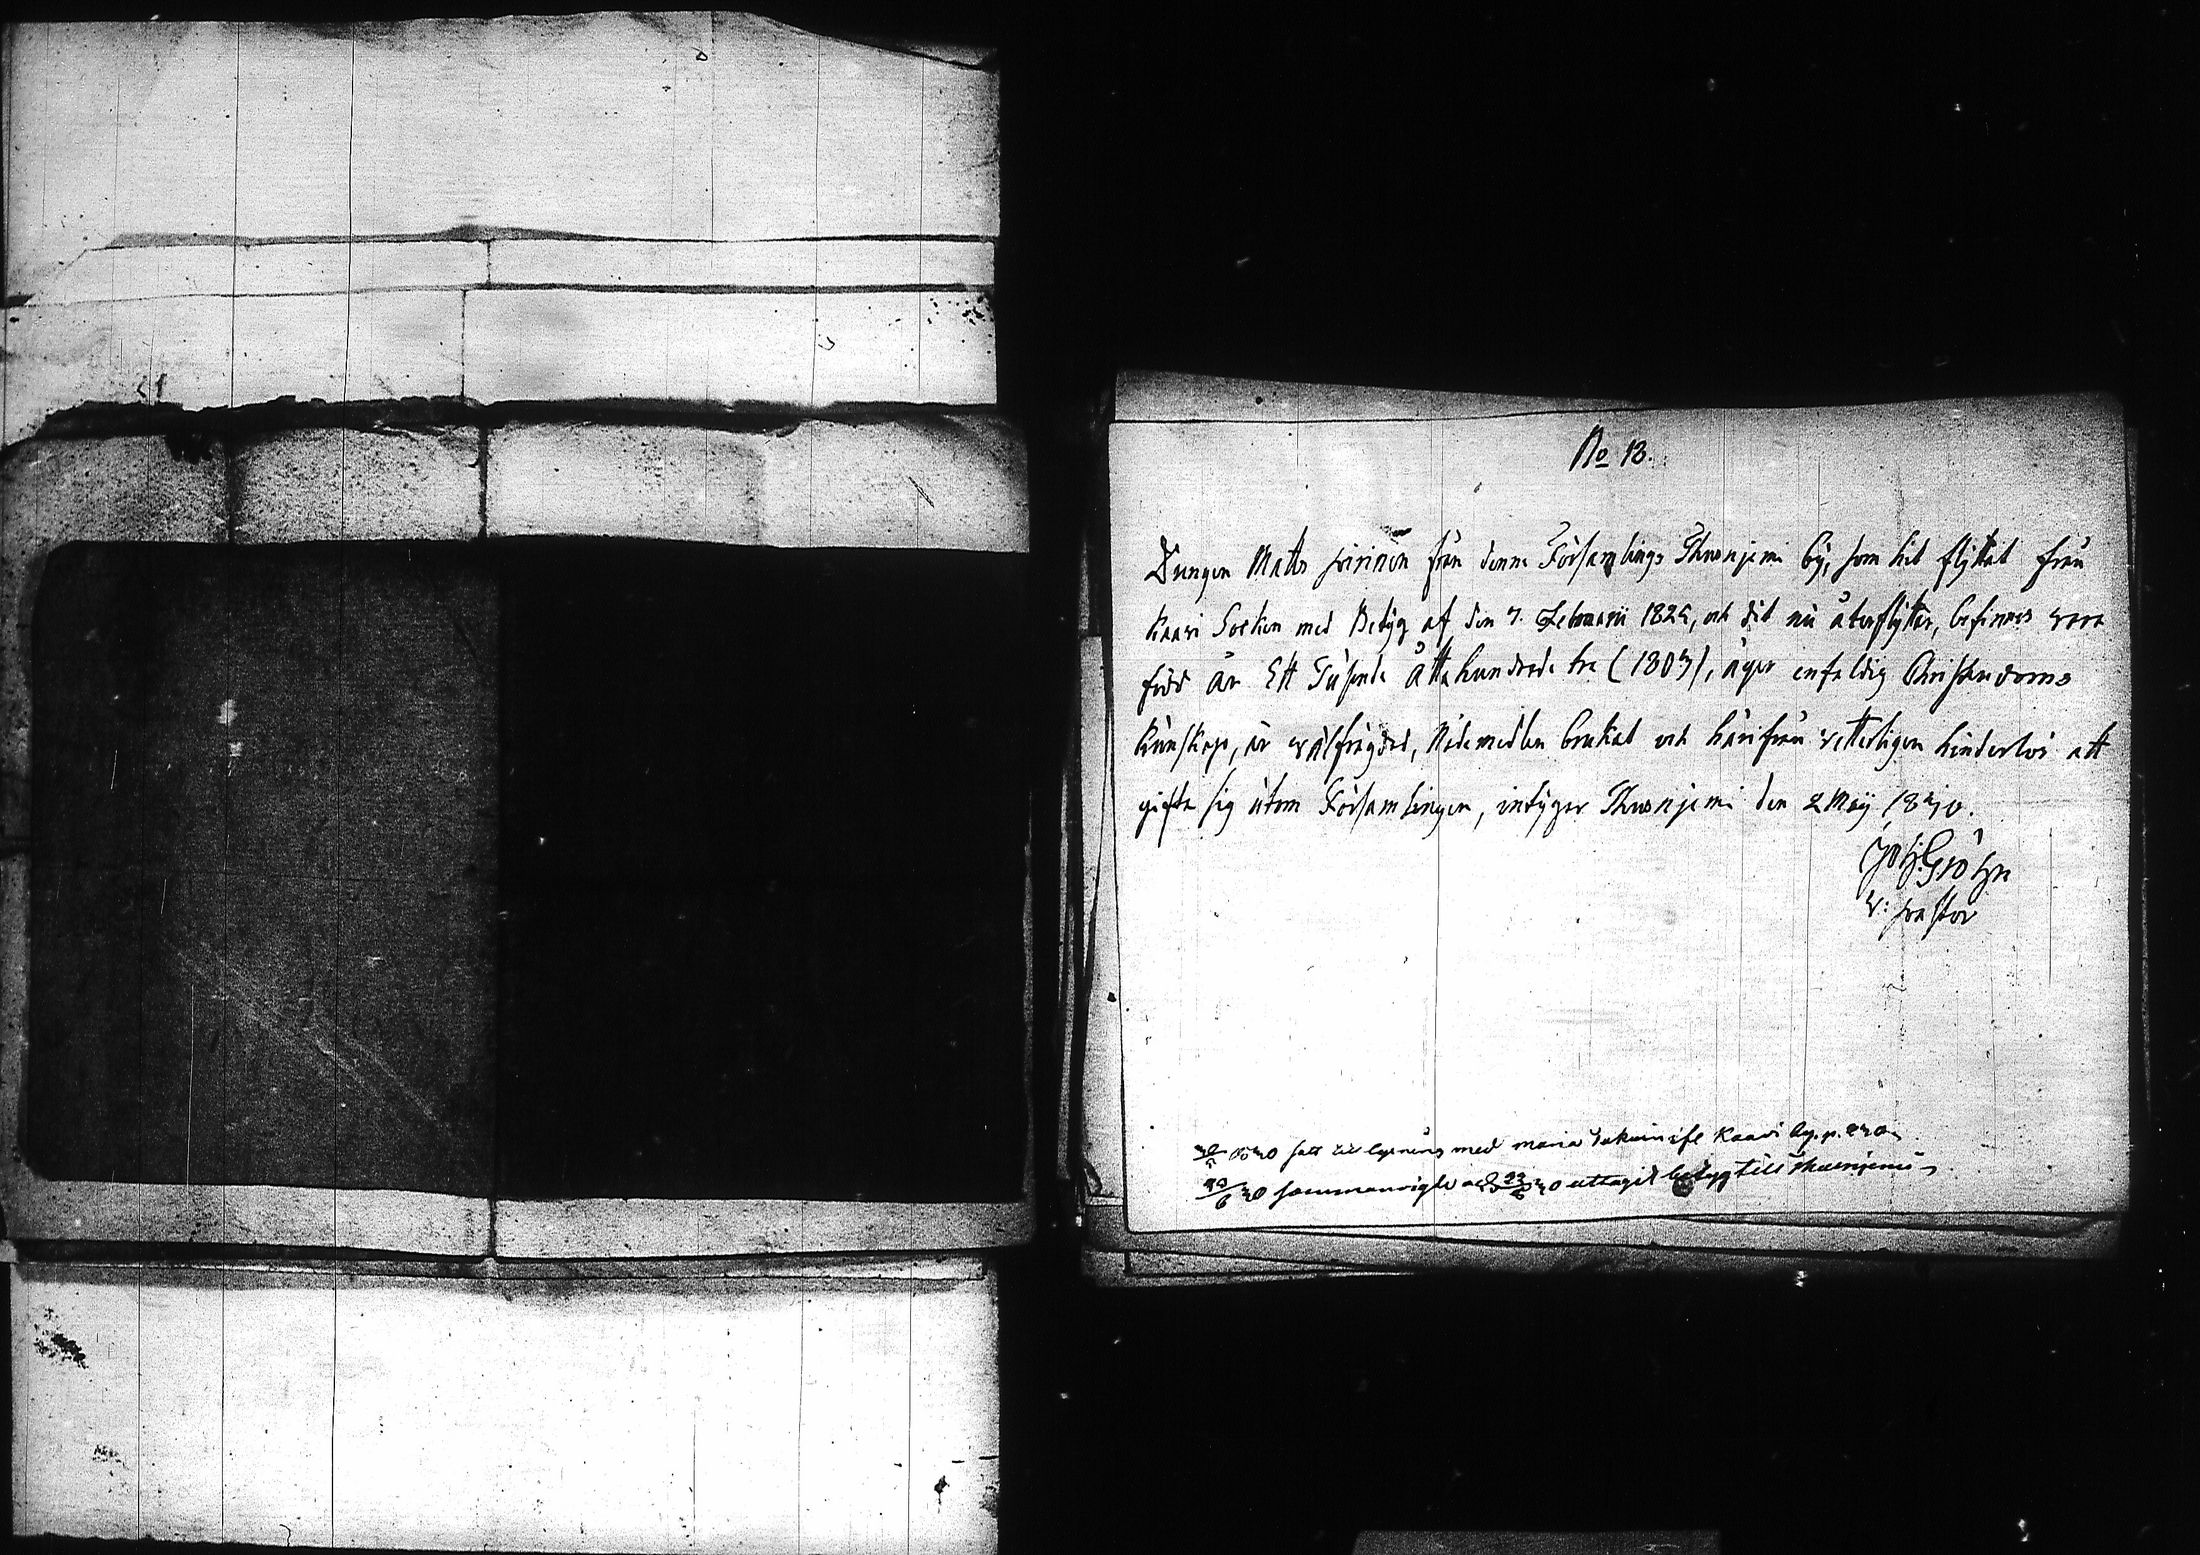 No 13.
Drengen Matts Pirinen från denna Församlings Thusnjemi by, som hit flyttat från
Kaavi Socken med Betyg af den 7. Februarii 1824, och dit nu återflyttar, befinnes vara
född år Ett Tusende Åttahundrade tre (1803), äger enfaldig Christendoms
kunskap, är välfrägdad, Nådemedlen brukat och härifrån vetterligen hinderlös att
gifta sig utom Församlingen, intygar Thusnjemi den 2 Maij 1830.
Joh Gröhn
v: pastor
30 satt till lysning med Maria Kaavi by. p.
30 sammanvigde och 30 uttagit betyg till Thusnjemi